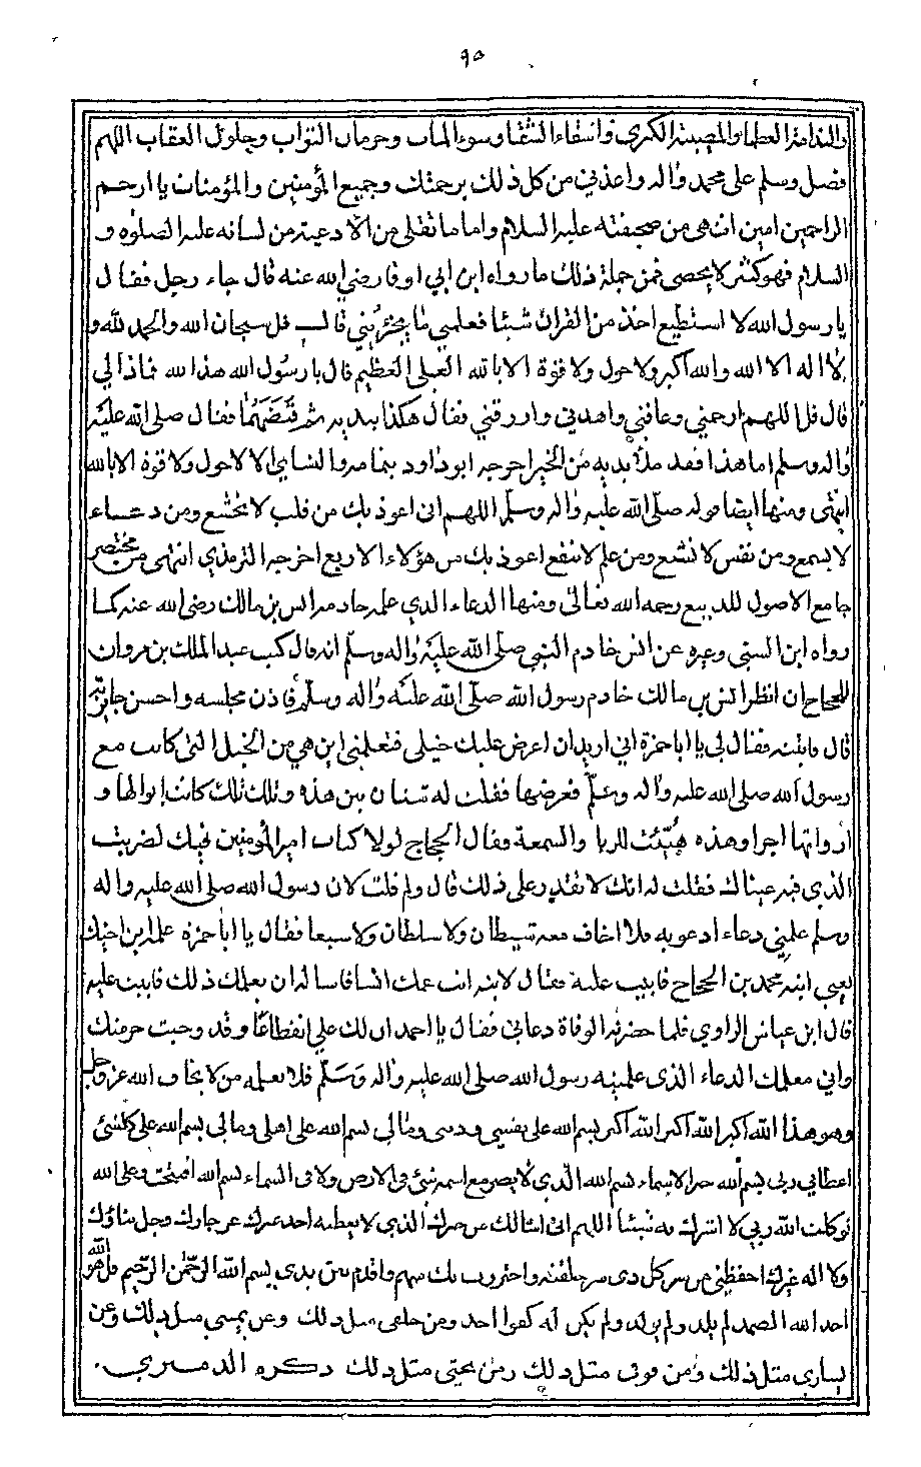 ٩٥
والندامة العظما والمصيبة الكبرى واشقاء الشقا وسوء المآب وحرمان الثواب وحلول العقاب اللهم
فصل وسلم على محمد وآله واعذني من كل ذلك برحمتك وجميع المؤمنين والمؤمنات يا ارحم
الراحمين امين انتهى من صحيفته عليه السلام واما ما نقلي من الادعية من لسانه عليه الصلوٰة و
السلام فهو كثير لا يحصى فمن جملة ذلك ما رواه ابن ابي اوفا رضي الله عنه قال جاء رجل فقال
يا رسول الله لا استطيع اخذ من القرآن شيئا فعلمني ما يجزئني قال قل سبحان الله والحمد لله و
لا اله الا الله والله اكبر ولا حول ولا قوة الا بالله العلي العظيم قال يا رسول الله هذا لله فماذا لي
قال قل اللهم ارحمني وعافني واهدني وارزقني فقال هكذا بيديه ثم قبضهما فقال صلى الله عليه
وآله وسلم اما هذا فقد ملأ يديه من الخير اخرجه ابو داود بتمامه والنسائي الا لا حول ولا قوة الا بالله
انتهى ومنها ايضا قوله صلى الله عليه وآله وسلم اللهم اني اعوذ بك من قلب لا يخشع ومن دعاء
لا يسمع ومن نفس لا تشبع ومن علم لا ينفع اعوذ بك من هؤلاء الاربع اخرجه الترمذي انتهى من مختصر
جامع الاصول للديبع رحمه الله تعالى ومنها الدعاء الذي علمه خادمه انس بن مالك رضي الله عنه كما
رواه ابن السني وغيره عن انس خادم النبي صلى الله عليه وآله وسلم انه قال كتب عبد الملك بن مروان
للحجاج ان انظر انس بن مالك خادم رسول الله صلى الله عليه وآله وسلم فادن مجلسه واحسن جائزته
قال فاتيته فقال لي يا ابا حمزة اني اريد ان اعرض عليك خيلي فتعلمني اين هي من الخيل التي كانت مع
رسول الله صلى الله عليه وآله وسلم فعرضها فقلت له شتان بين هذه وتلك تلك كانت ابوالها و
ارواثها اجرا وهذه هُيّئت للريا والسمعة فقال الحجاج لولا كتاب امير المؤمنين فيك لضربت
الذي فيه عيناك فقلت له انك لا تقدر على ذلك قال ولم قلت لان رسول الله صلى الله عليه وآله
وسلم علمني دعاء ادعو به فلا اخاف معه شيطان ولا سلطان ولا سبعا فقال يا ابا حمزة علمه ابن اخيك
يعني ابنه محمد بن الحجاج فابيت عليه فقال لابنه ائت عمك انسا فاساله ان يعلمك ذلك فابيت عليه
قال ابن عباس الراوي فلما حضرته الوفاة دعاني فقال يا احمد ان لك علي انقطاعا وقد وجبت حرمتك
واني معلمك الدعاء الذي علمنيه رسول الله صلى الله عليه وآله وسلم فلا تعلمه من لا يخاف الله عز وجل
وهو هذا الله اكبر الله اكبر الله اكبر بسم الله على نفسي وديني ومالي بسم الله على اهلي ومالي بسم الله على كل شئ
اعطاني ربي بسم الله خير الاسماء بسم الله الذي لا يضر مع اسمه شئ في الارض ولا في السماء بسم الله افتتحت وعلى الله
توكلت الله ربي لا اشرك به شيئا اللهم اني اسالك من خيرك الذي لا يعطيه احد غيرك عز جارك وجل ثناؤك
ولا اله غيرك احفظني من شر كل ذي شر خلقته واحترز بك منهم واقدم بين يدي بسم الله الرحمن الرحيم قل هو الله
احد الله الصمد لم يلد ولم يولد ولم يكن له كفوا احد ومن خلفي مثل ذلك وعن يميني مثل ذلك وعن
يساري مثل ذلك ومن فوقي مثل ذلك ومن تحتي مثل ذلك ذكره الدميري.